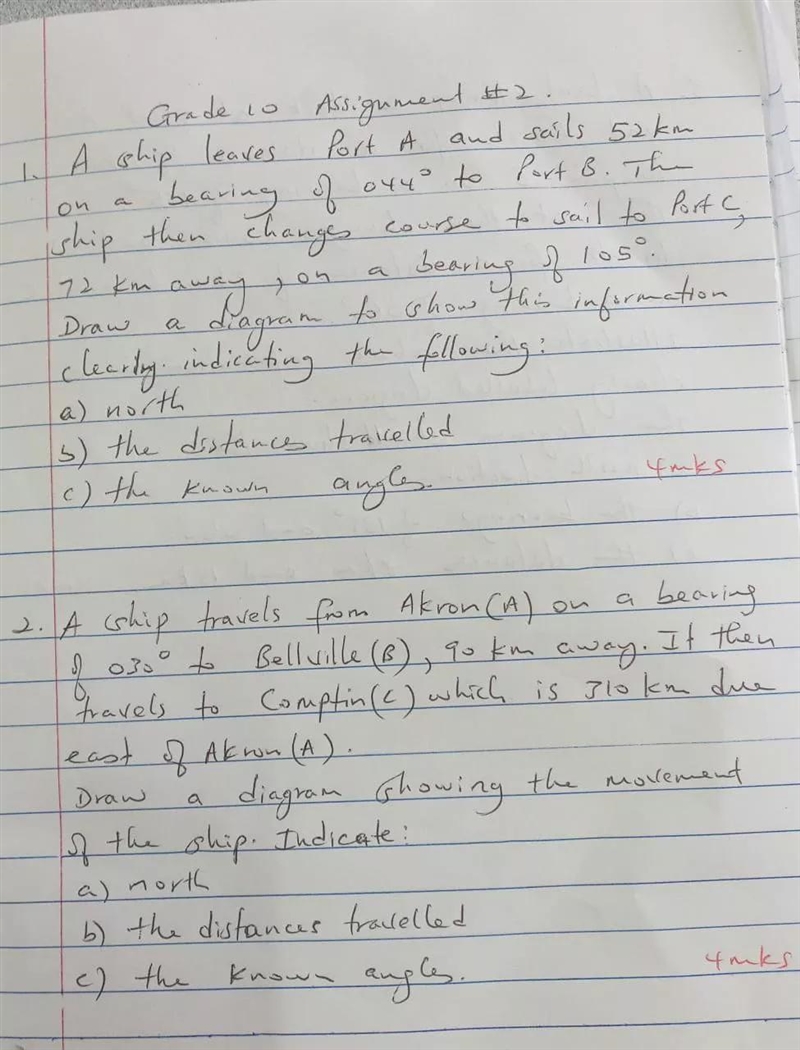 Grade 10 Assignment #2.
1. A ship leaves Port A and sails 52km
on a bearing of 044° to Port B. The
ship then changes course to sail to Port C,
72 km away, on a bearing of 105°.
Draw a diagram to show this information
clearly. indicating the following:
a) north
b) the distances travelled
c) the known angles.
4mks
2. A ship travels from Akron(A) on a bearing
of 030° to Bellville(B), 90 km away. It then
travels to Comptin(C) which is 310 km due
east of Akron(A).
Draw a diagram showing the movement
of the ship. Indicate:
a) north
b) the distances travelled
c) the known angles.
4mks